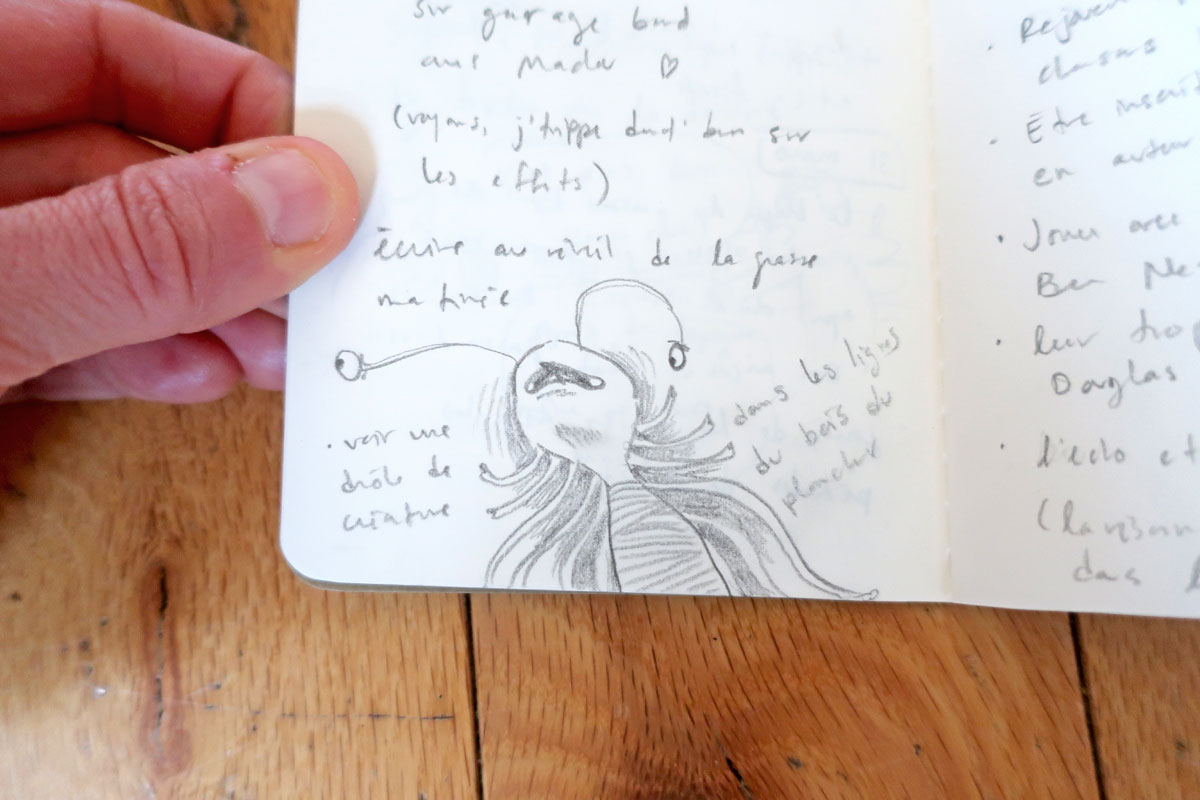 sur garage band
avec Mado ♡
(voyons, j'trippe dont' ben sur
les effets)
écrire au réveil de la grasse
matinée
· voir une
drôle de
créature
dans les lignes
du bois du
plancher
·
clusus
· Être inscrit
en auteur
· Jouer avec
Ben
· leur
Douglas
·
(la
das